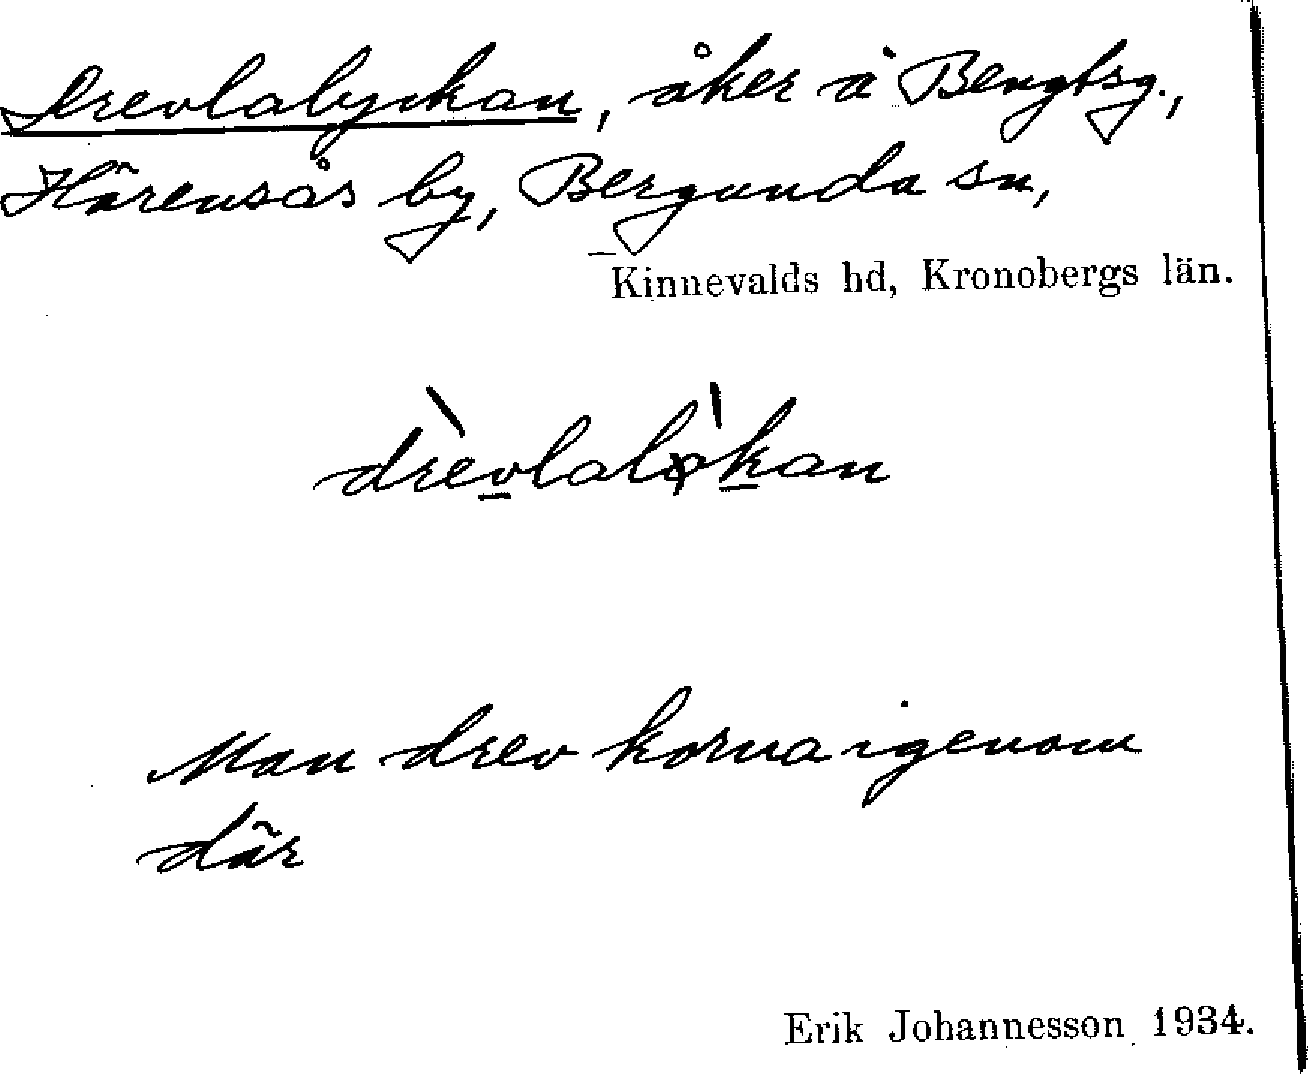 Drevlalyckan, åker å Bengtsg.,
Härensås by, Bergunda sn,
Kinnevalds hd, Kronobergs län.
drèvlaløkan
Man drev korna igenom
där
Erik Johannesson 1934.